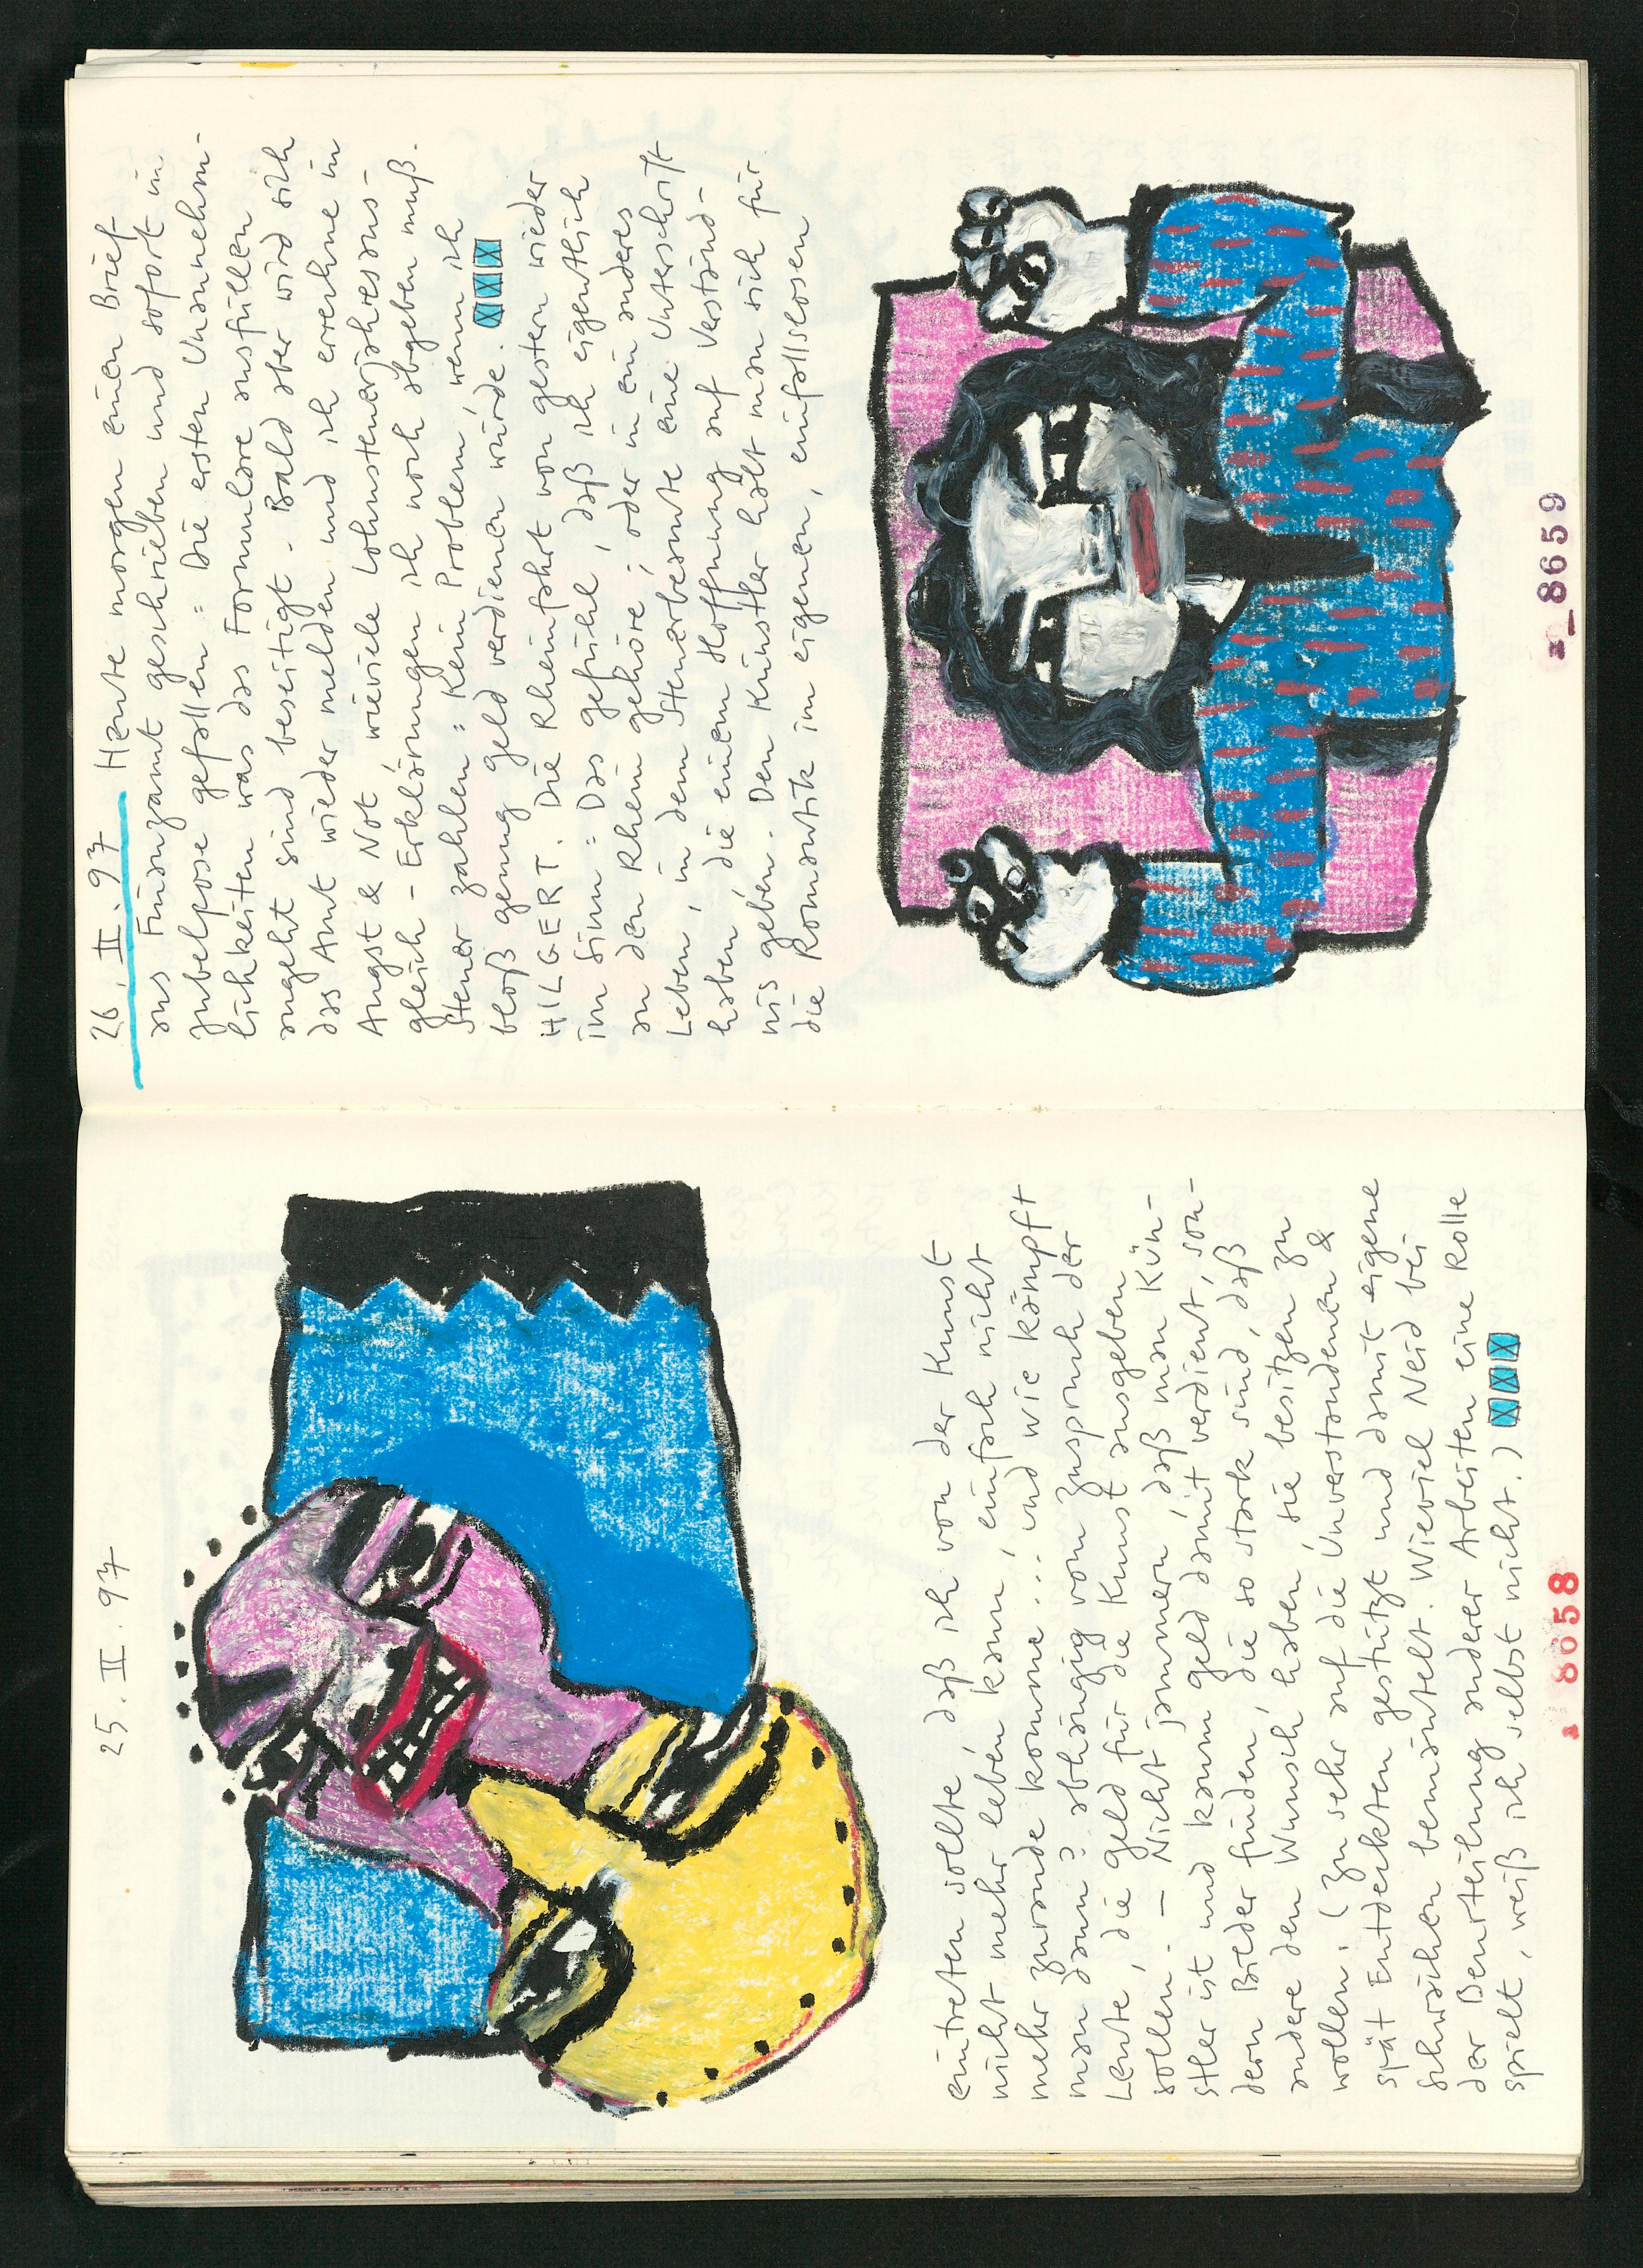 25. II. 97
eintreten sollte, daß ich von der Kunst
nicht mehr leben kann, einfach nicht
mehr zurande komme... und wie kämpft
man dann? abhängig vom Zuspruch der
Leute, die Geld für die Kunst ausgeben
sollen. – Nicht jammern, daß man Kün-
stler ist und kaum Geld damit verdient, son-
dern Bieder finden, die so stark sind, daß
andere den Wunsch haben, sie besitzen zu
wollen. (Zu sehr auf die Unverstandenen &
spät Entdeckten gestützt und damit eigene
Schwächen bemäntelt. Wieviel Neid bei
der Beurteilung anderer Arbeiten eine Rolle
spielt, weiß ich selbst nicht.)
8658
26. II. 97 Heute morgen einen Brief
ans Finanzamt geschrieben und sofort in
Jubelpose gefallen: Die ersten Unannehm-
lichkeiten was das Formulare ausfüllen
angeht sind beseitigt. Bald aber wird sich
das Amt wieder melden und ich errechne in
Angst & Not, wieviele Lohnsteuerjahresaus-
gleich-Erklärungen ich noch abgeben muß.
Steuer zahlen: Kein Problem, wenn ich
bloß genug Geld verdienen würde.
HILGERT. Die Rheinfahrt von gestern wieder
im Sinn: Das Gefühl, daß ich eigentlich
an den Rhein gehöre; oder in ein anderes
Leben, in dem Steuerbeamte eine Unterschrift
haben, die einem Hoffnung auf Verständ-
nis geben. Den Künstler hält man sich für
die Romantik im eigenen, einfallslosen
8659